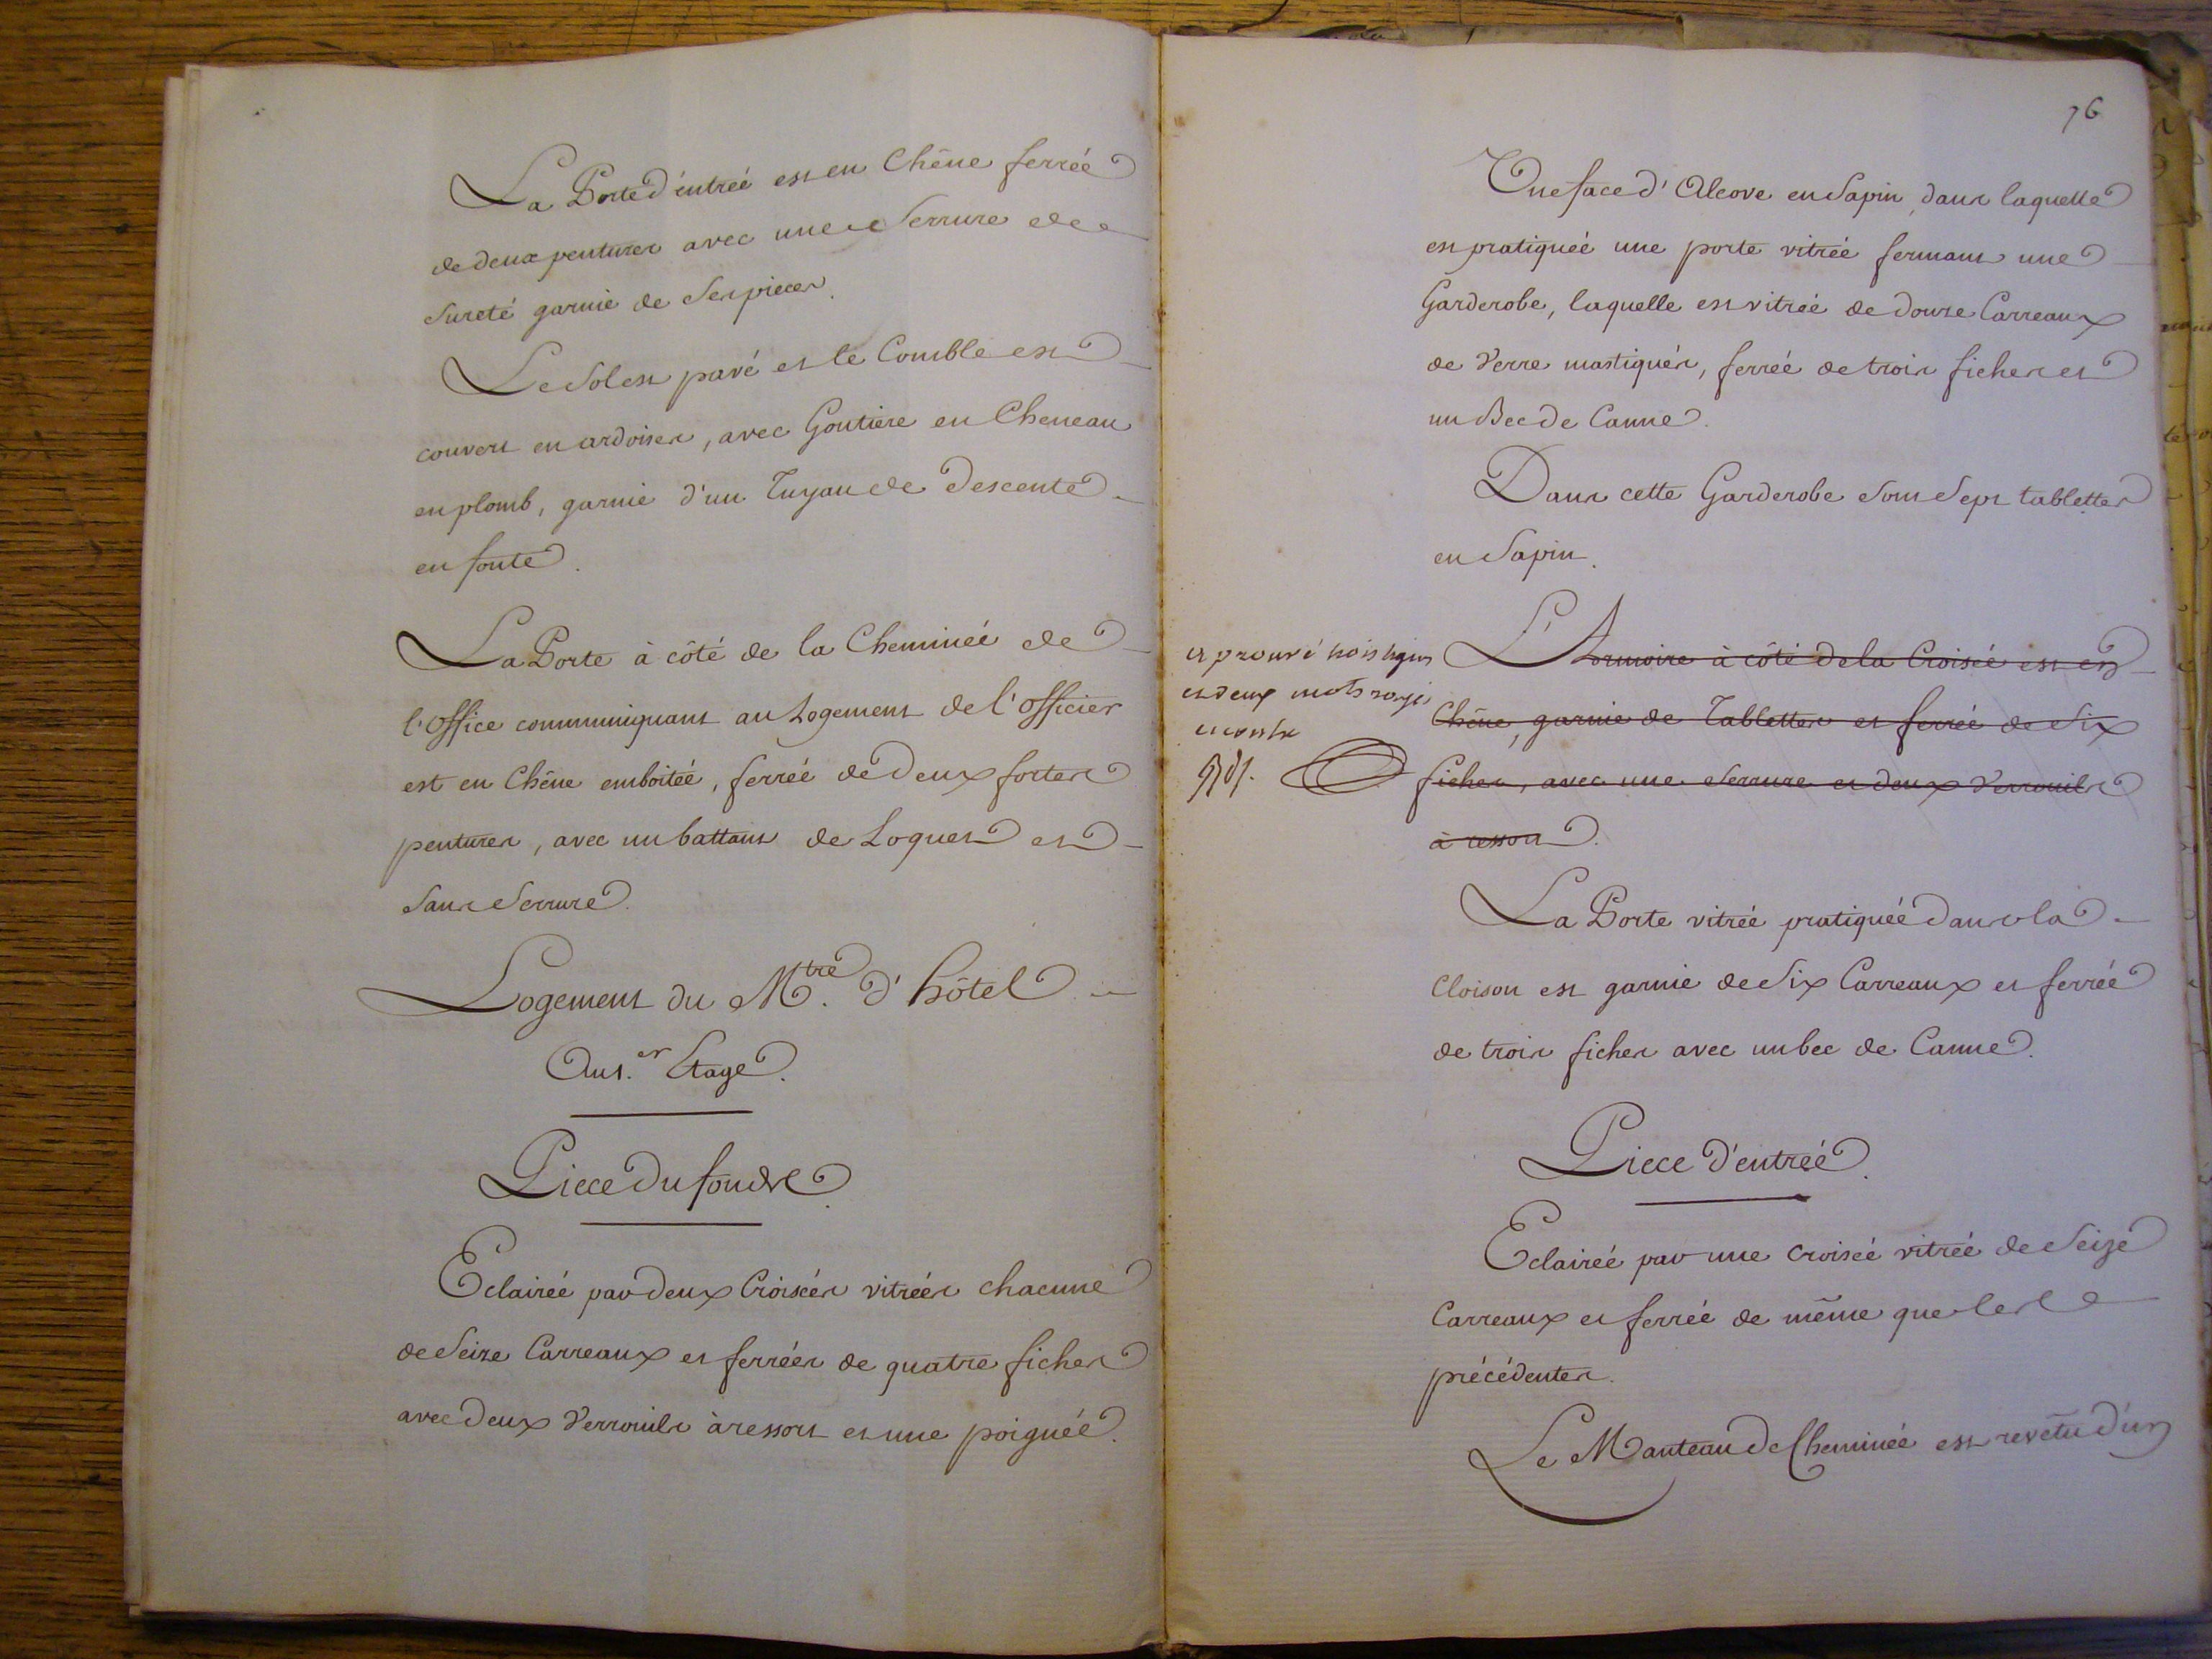 La Porte d'entreé est en Chêne ferrée
de deux pentures avec une Serrure de
Sureté garnie de Ses pieces.
Le Sol est pavé et le Comble est
couvert en ardoises, avec Goutiere en Cheneau
en plomb, garnie d'un Tuyau de Descente
en fonte.
La Porte à côté de la Cheminée de
l'Office communiquant au Logement de l'officier
est en Chêne emboitée, ferrée de deux fortes
pentures, avec un battant de Loquet et
Sans Serrure.
Logement du M.tre d'hôtel
Au 1.er Etage.
Piece du fonds.
Eclairée par deux Croisées vitrées chacune
de Seize Carreaux et ferrées de quatre fiches
avec deux Verrouils à ressort et une poignée.
76
Une face d'Alcove en Sapin, dans laquelle
est pratiquée une porte vitrée fermant une
Garderobe, laquelle est vitrée de douze Carreaux
de Verre mastiqués, ferrée de trois fiches et
un Bec de Canne.
Dans cette Garderobe Sont Sept tablettes
en Sapin.
approuvé trois lignes
et deux mots rayés
L'Armoire à côté de la Croisée est en
Chêne, garnie de Tablettes et ferrée de Six
fiches, avec une Serrure et deux Verrouils
à ressort.
La Porte vitrée pratiquée dans la
Cloison est garnie de Six Carreaux et ferrée
de trois fiches avec un bec de Canne.
Piece d'entrée.
Eclairée par une Croisée vitrée de Seize
Carreaux et ferrée de même que les
précédentes.
Le Manteau de Cheminée est revêtu d'un